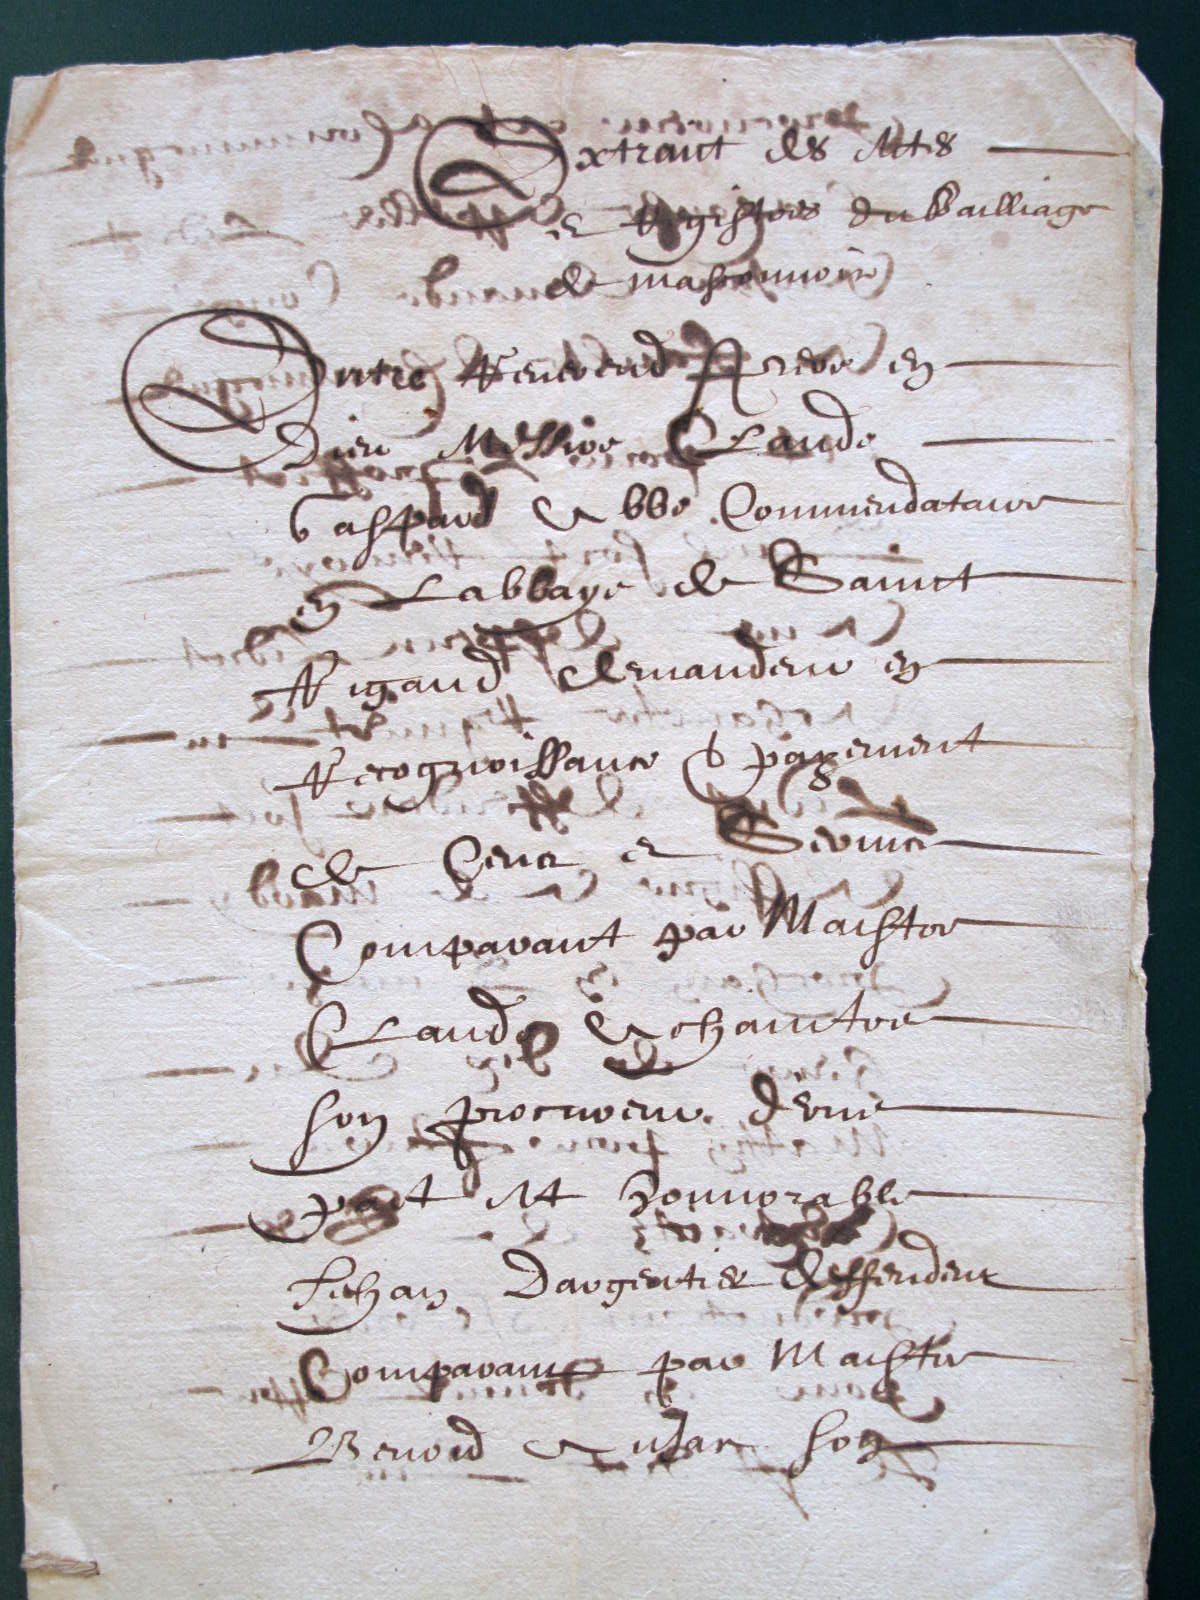 Extraict des Actes
et Registres du Bailliage
de masconnois
Entre Reverend Pere en
Dieu Messire Claude
Gaspard abbe Commendataire
en Labbaye de Sainct
Rigaud demandeur en
Recognoissance & payement
de Cens et Servis
Comparant par Maistre
Claude Dechaintre
son procureur d'une
part Et honnorable
Jehan Dargentier deffendeur
Comparant par Maistre
Benoid son